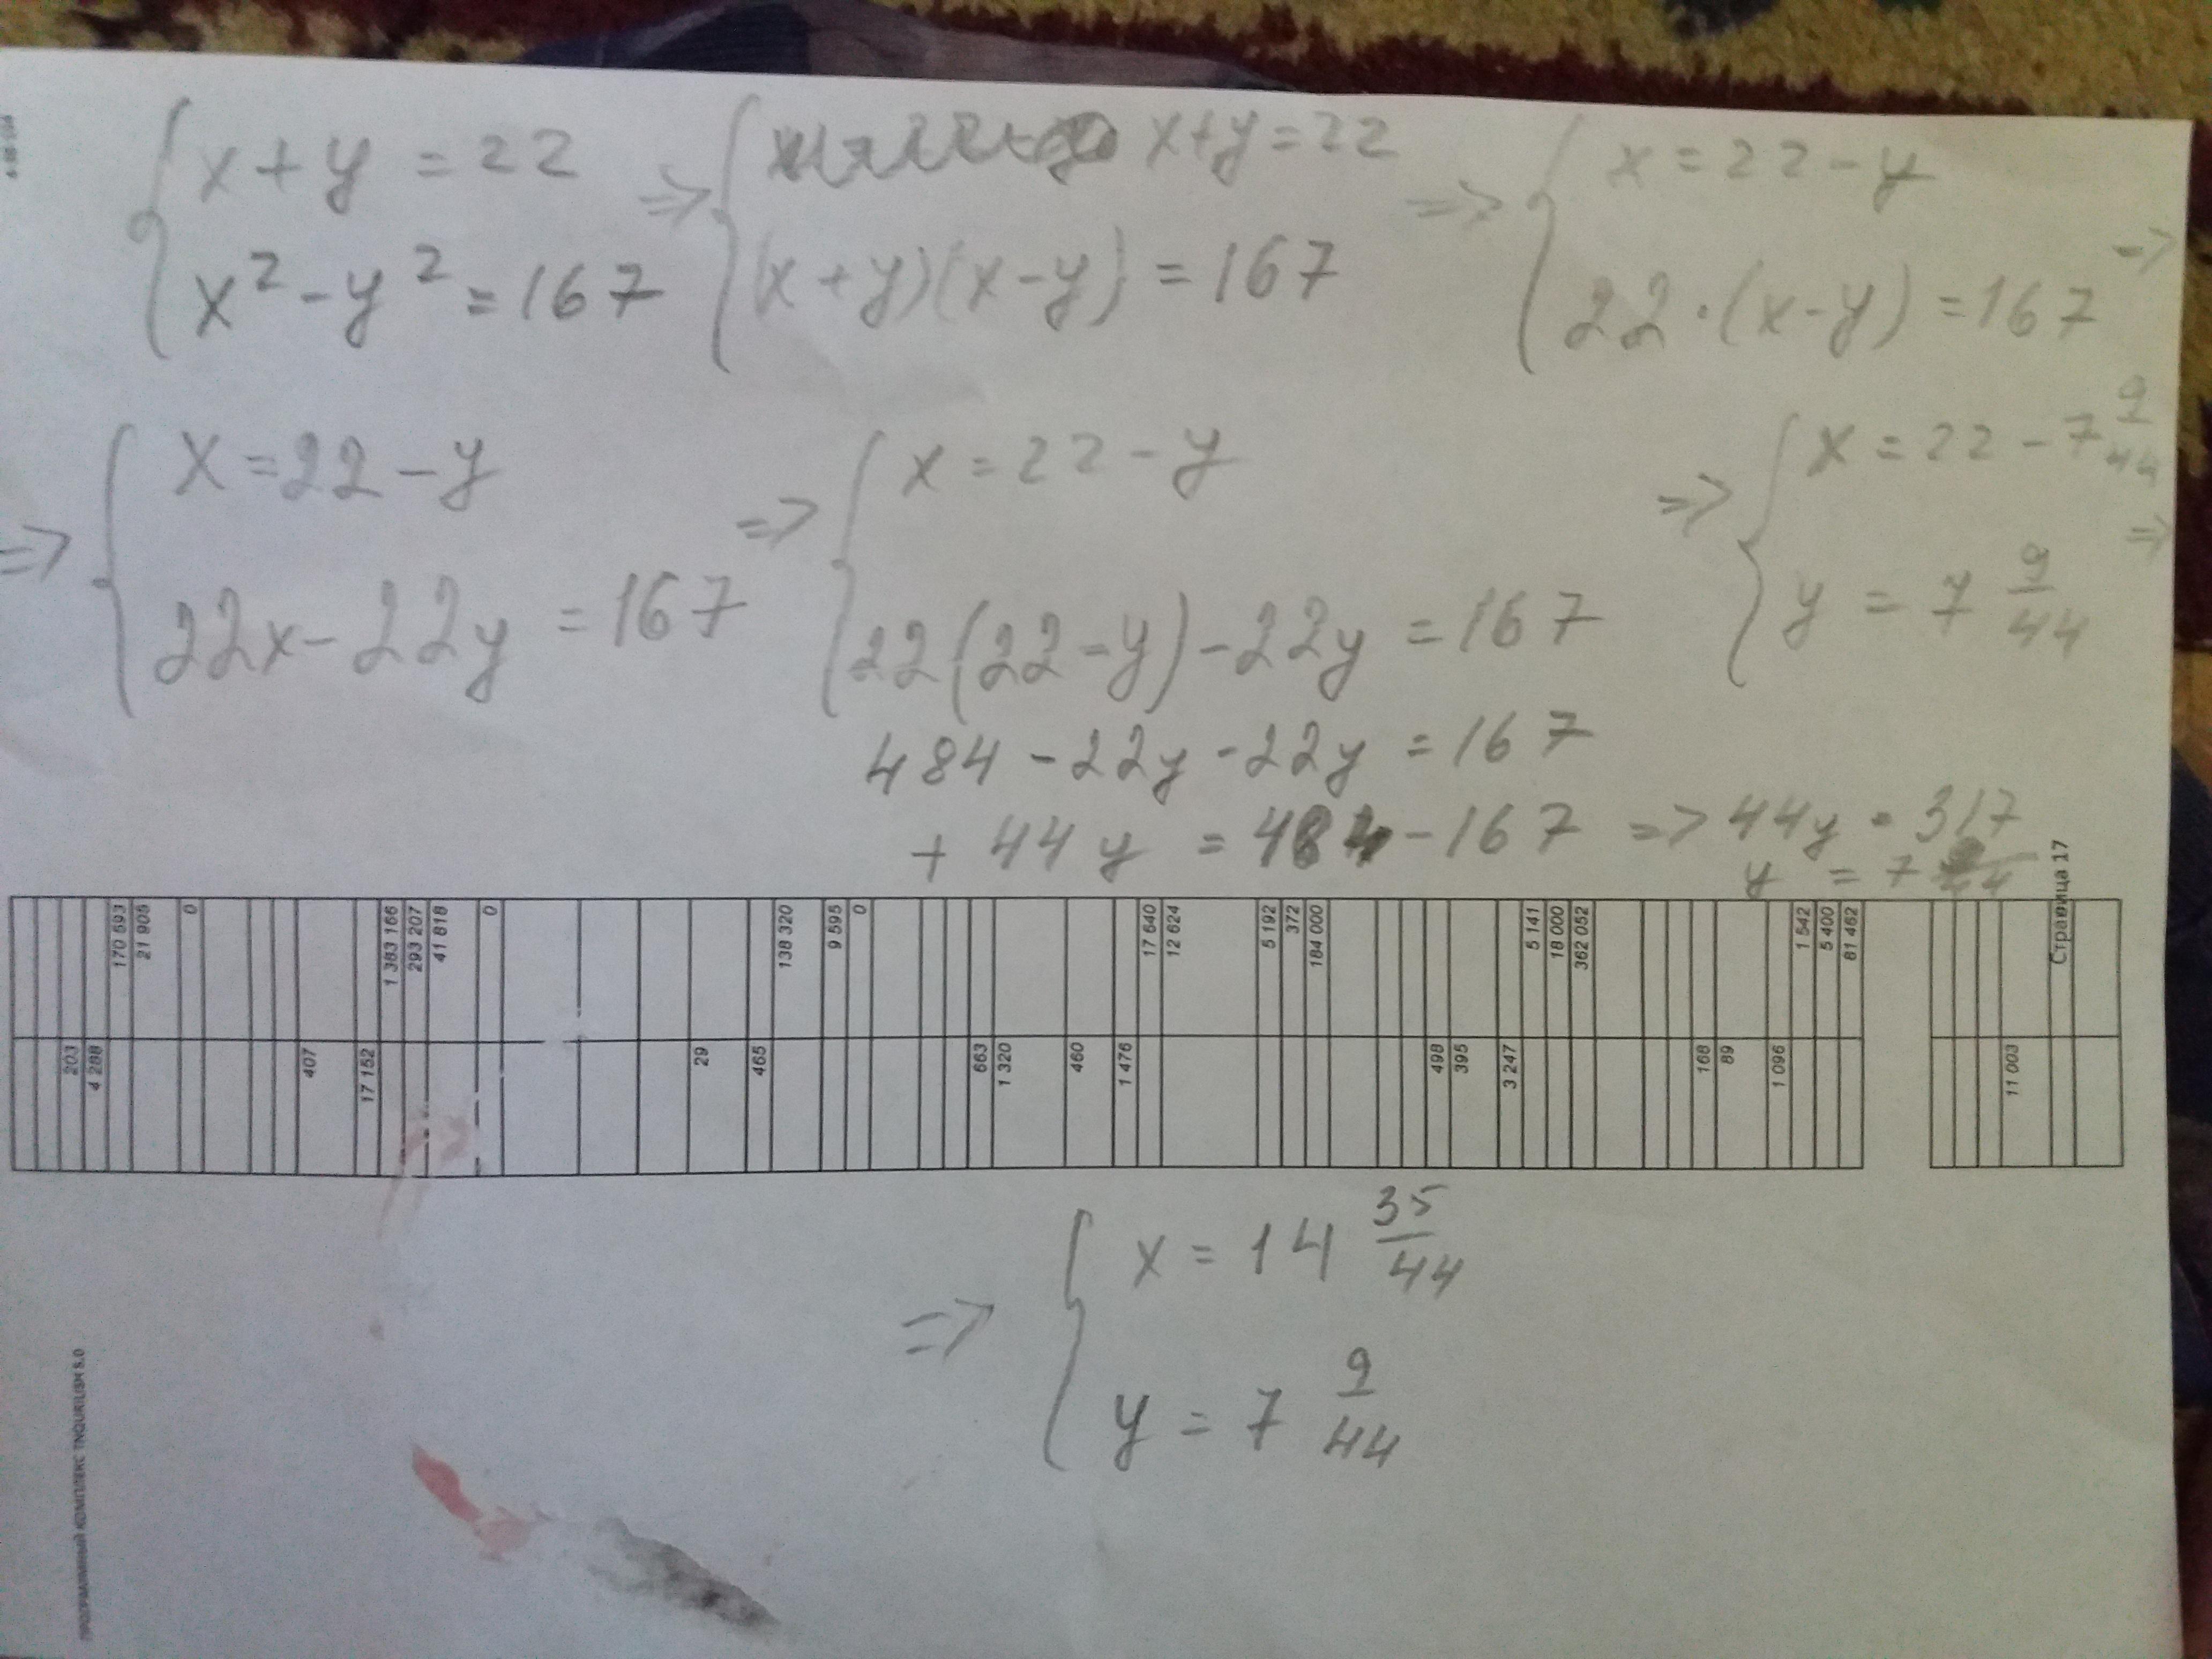 { x + y = 22
x² - y² = 167
=> { x+y=22
(x+y)(x-y) = 167
=> { x = 22 - y
22·(x-y) = 167 =>
=> { x = 22 - y
22x - 22y = 167
=> { x = 22 - y
22(22-y) - 22y = 167
484 - 22y - 22y = 167
+ 44y = 484 - 167 => 44y = 317
y = 7
=> { x = 22 - 7 9/44
y = 7 9/44 =>
203
4 288
170 593
21 905
0
407
17 152
1 383 166
293 207
41 818
0
29
465
138 320
9 595
0
663
1 320
460
1 476
17 640
12 624
5 192
372
184 000
498
395
3 247
5 141
18 000
362 052
168
89
1 096
1 542
5 400
81 462
11 003
Страница 17
=> { x = 14 35/44
y = 7 9/44
ПРОГРАММНЫЙ КОМПЛЕКС TNQURILISH 5.0